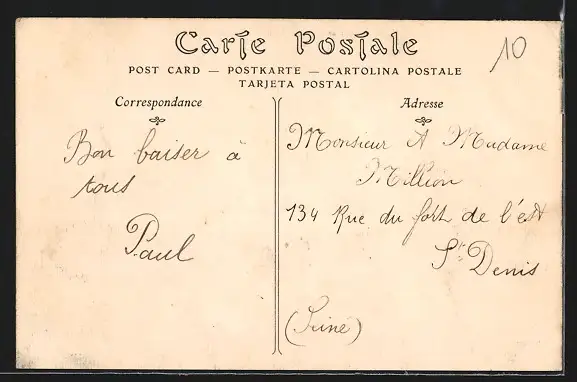 Carte Postale
10
POST CARD — POSTKARTE — CARTOLINA POSTALE
TARJETA POSTAL
Correspondance
Bon baiser à
tous
Paul
Adresse
Monsieur & Madame
Million
134 Rue du fort de l'est
St Denis
(Seine)